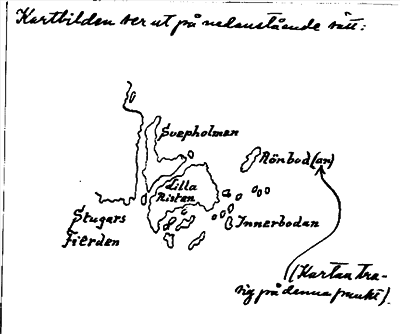 Kartbilden ser ut på nedanstående sätt:
Svepholmen
Rönbod(an)
Lilla
Risten
Stugars
Fierden
Innerbodan
(Kartan tra-
sig på denna punkt).